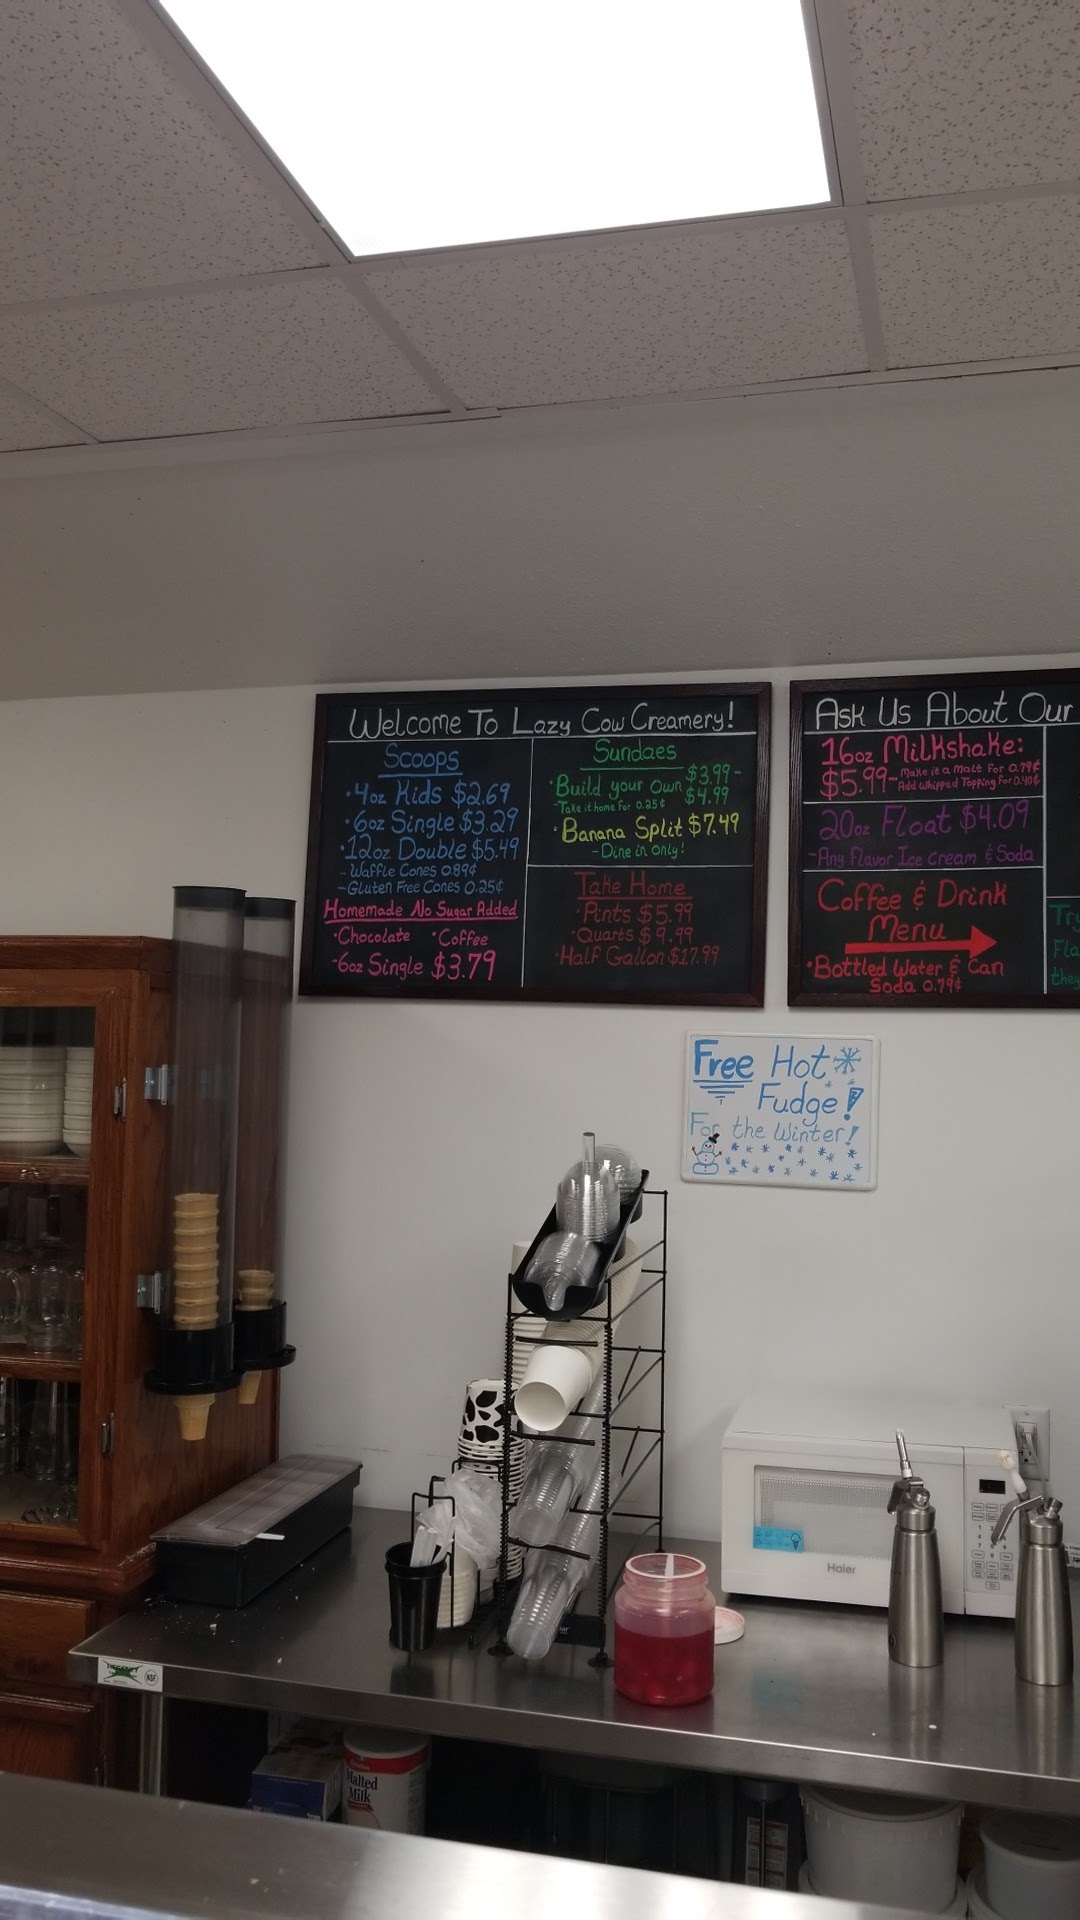 Welcome To Lazy Cow Creamery!
Scoops
• 4oz Kids $2.69
• 6oz Single $3.29
• 12oz Double $5.49
- Waffle Cones 0.89¢
- Gluten Free Cones 0.25¢
Homemade No Sugar Added
• Chocolate • Coffee
- 6oz Single $3.79
Sundaes
• Build your own $3.99-
$4.99
- Take it home for 0.25¢
• Banana Split $7.49
- Dine in Only!
Take Home
• Pints $5.99
• Quarts $9.99
• Half Gallon $17.99
Ask Us About Our
16oz Milkshake:
$5.99 - Make it a Malt for 0.79¢
- Add Whipped Topping for 0.40¢
20oz Float $4.09
- Any Flavor Ice Cream & Soda
Coffee & Drink
Menu
• Bottled Water & Can
Soda 0.79¢
Try
Fla
they
Free Hot
Fudge!
For the Winter!
Haier
NSF
Malted
Milk